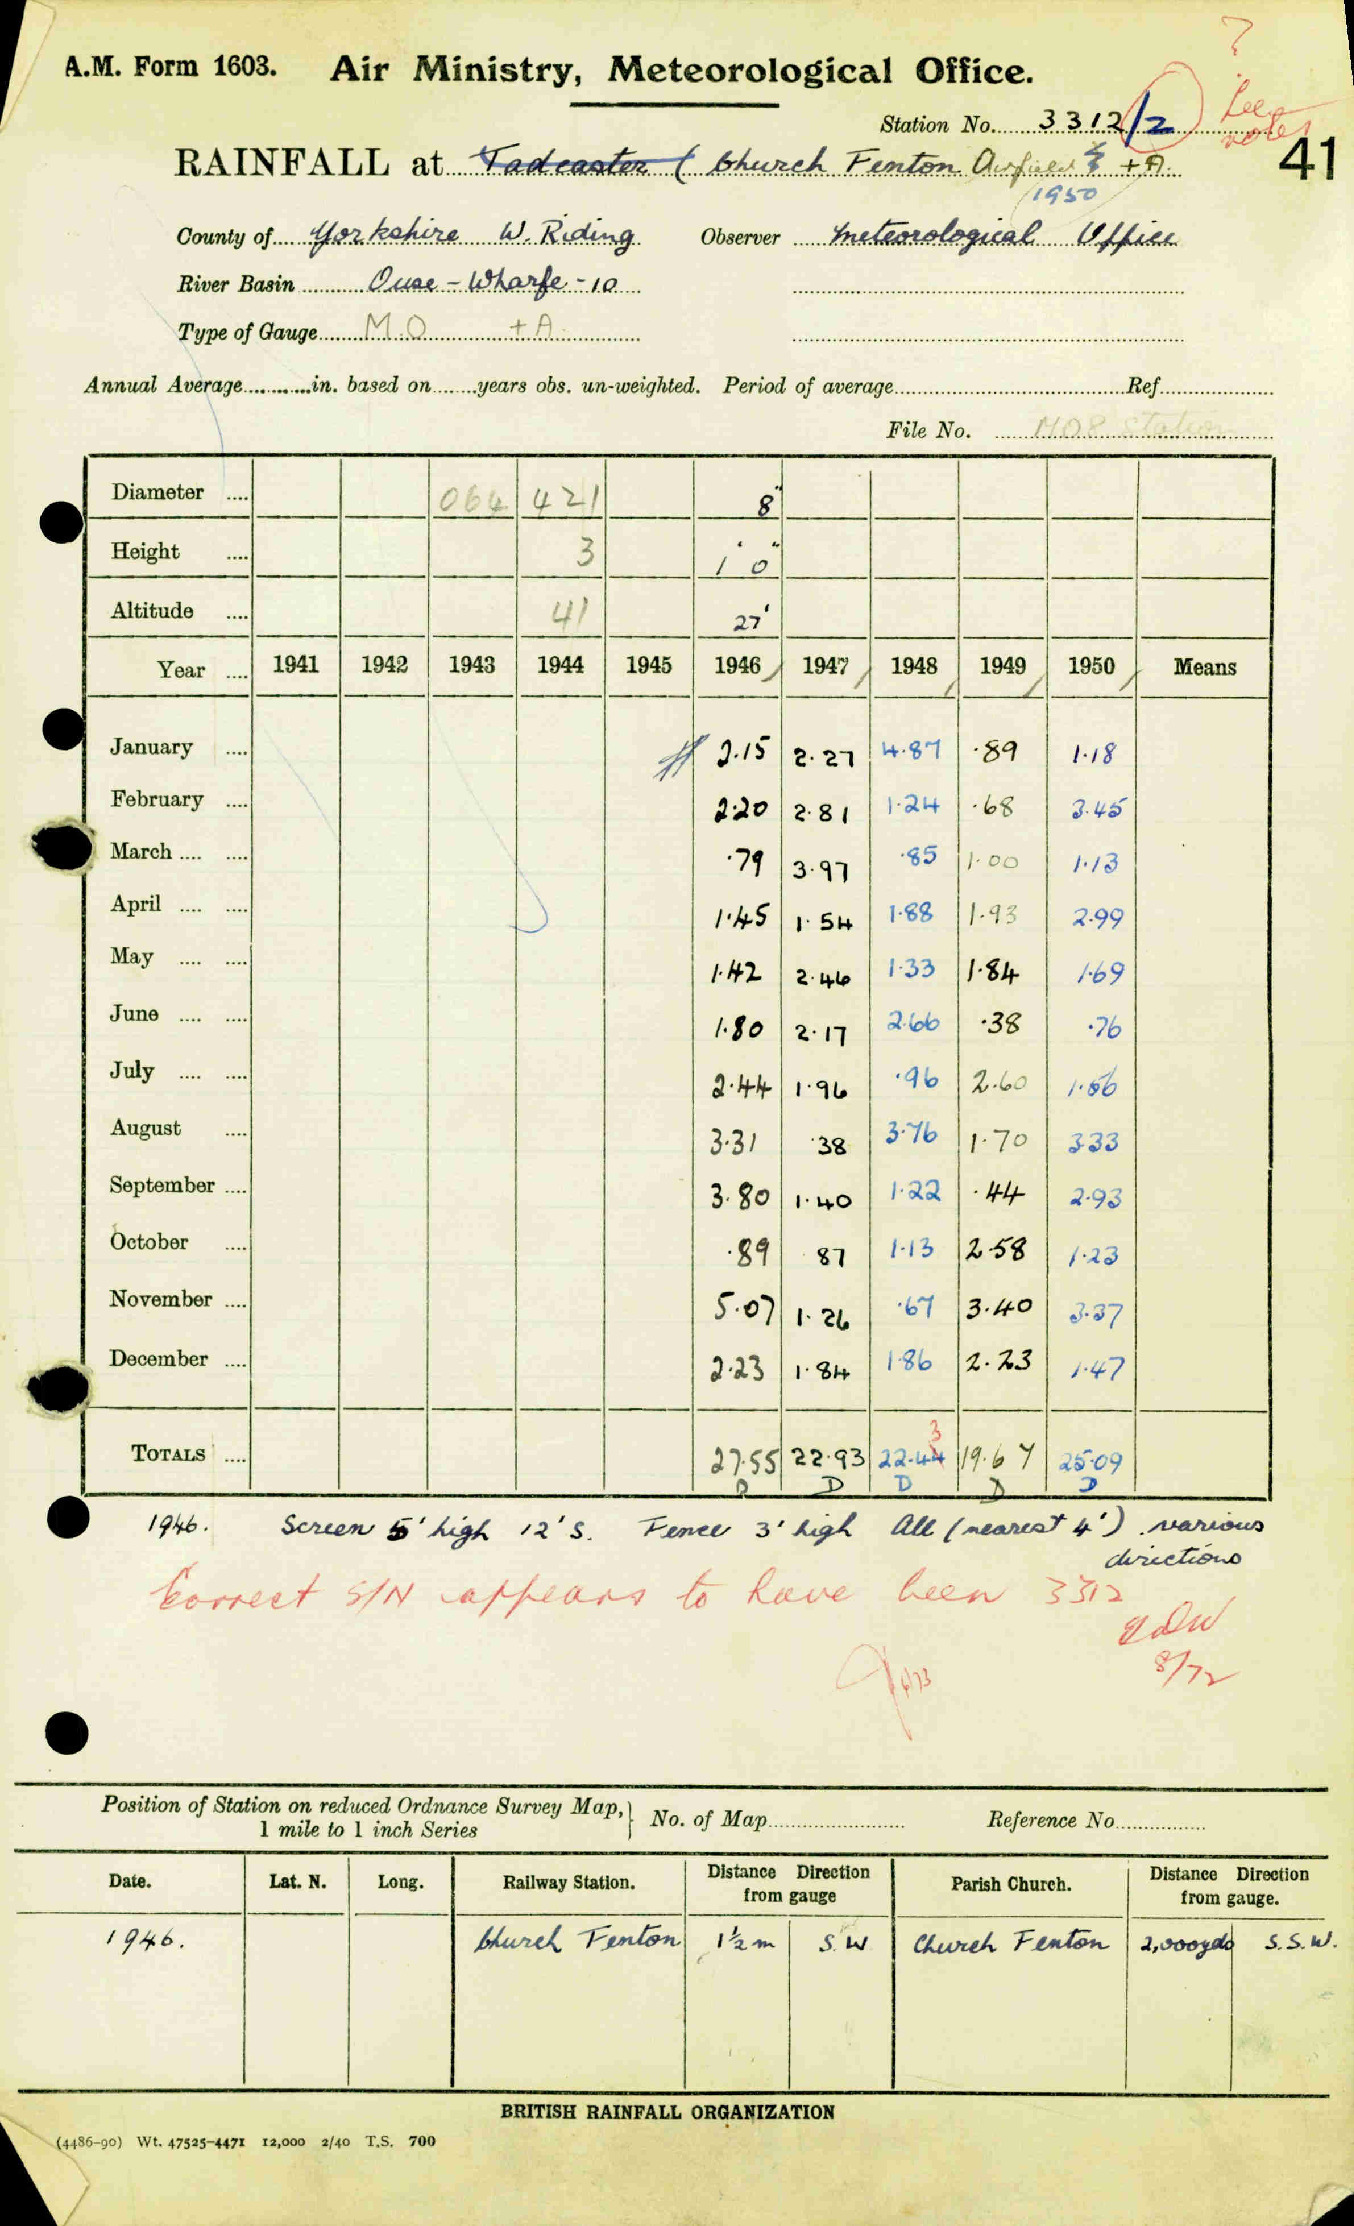 A.M. Form 1603. Air Ministry, Meteorological Office.
? See notes
Station No. 3312/2
41
RAINFALL at Tadcaster ( Church Fenton Airfield + A.
1950
County of Yorkshire W. Riding Observer Meteorological Office
River Basin Ouse - Wharfe - 10
Type of Gauge M.O + A.
Annual Average in. based on years obs. un-weighted. Period of average Ref.
File No. MO8 Station
Diameter 064 421 8"
Height 3 1' 0"
Altitude 41 27'
Year 1941 1942 1943 1944 1945 1946 1947 1948 1949 1950 Means
January 2.15 2.27 4.87 .89 1.18
February 2.20 2.81 1.24 .68 3.45
March .79 3.97 .85 1.00 1.13
April 1.45 1.54 1.88 1.93 2.99
May 1.42 2.46 1.33 1.84 1.69
June 1.80 2.17 2.66 .38 .76
July 2.44 1.96 .96 2.60 1.56
August 3.31 .38 3.76 1.70 3.33
September 3.80 1.40 1.22 .44 2.93
October .89 .87 1.13 2.58 1.23
November 5.07 1.26 .67 3.40 3.37
December 2.23 1.84 1.86 2.23 1.47
3
TOTALS 27.55 22.93 22.44 19.67 25.09
D D D D D
1946. Screen 5' high 12' S. Fence 3' high All (nearest 4') various
directions
Correct S/N appears to have been 3312
8/72
6/73
Position of Station on reduced Ordnance Survey Map, No. of Map Reference No.
1 mile to 1 inch Series
Date. Lat. N. Long. Railway Station. Distance Direction from gauge Parish Church. Distance Direction from gauge.
1946. Church Fenton 1½ m S.W Church Fenton 2,000yds S.S.W.
BRITISH RAINFALL ORGANIZATION
(4486-90) Wt. 47525-4471 12,000 2/40 T.S. 700